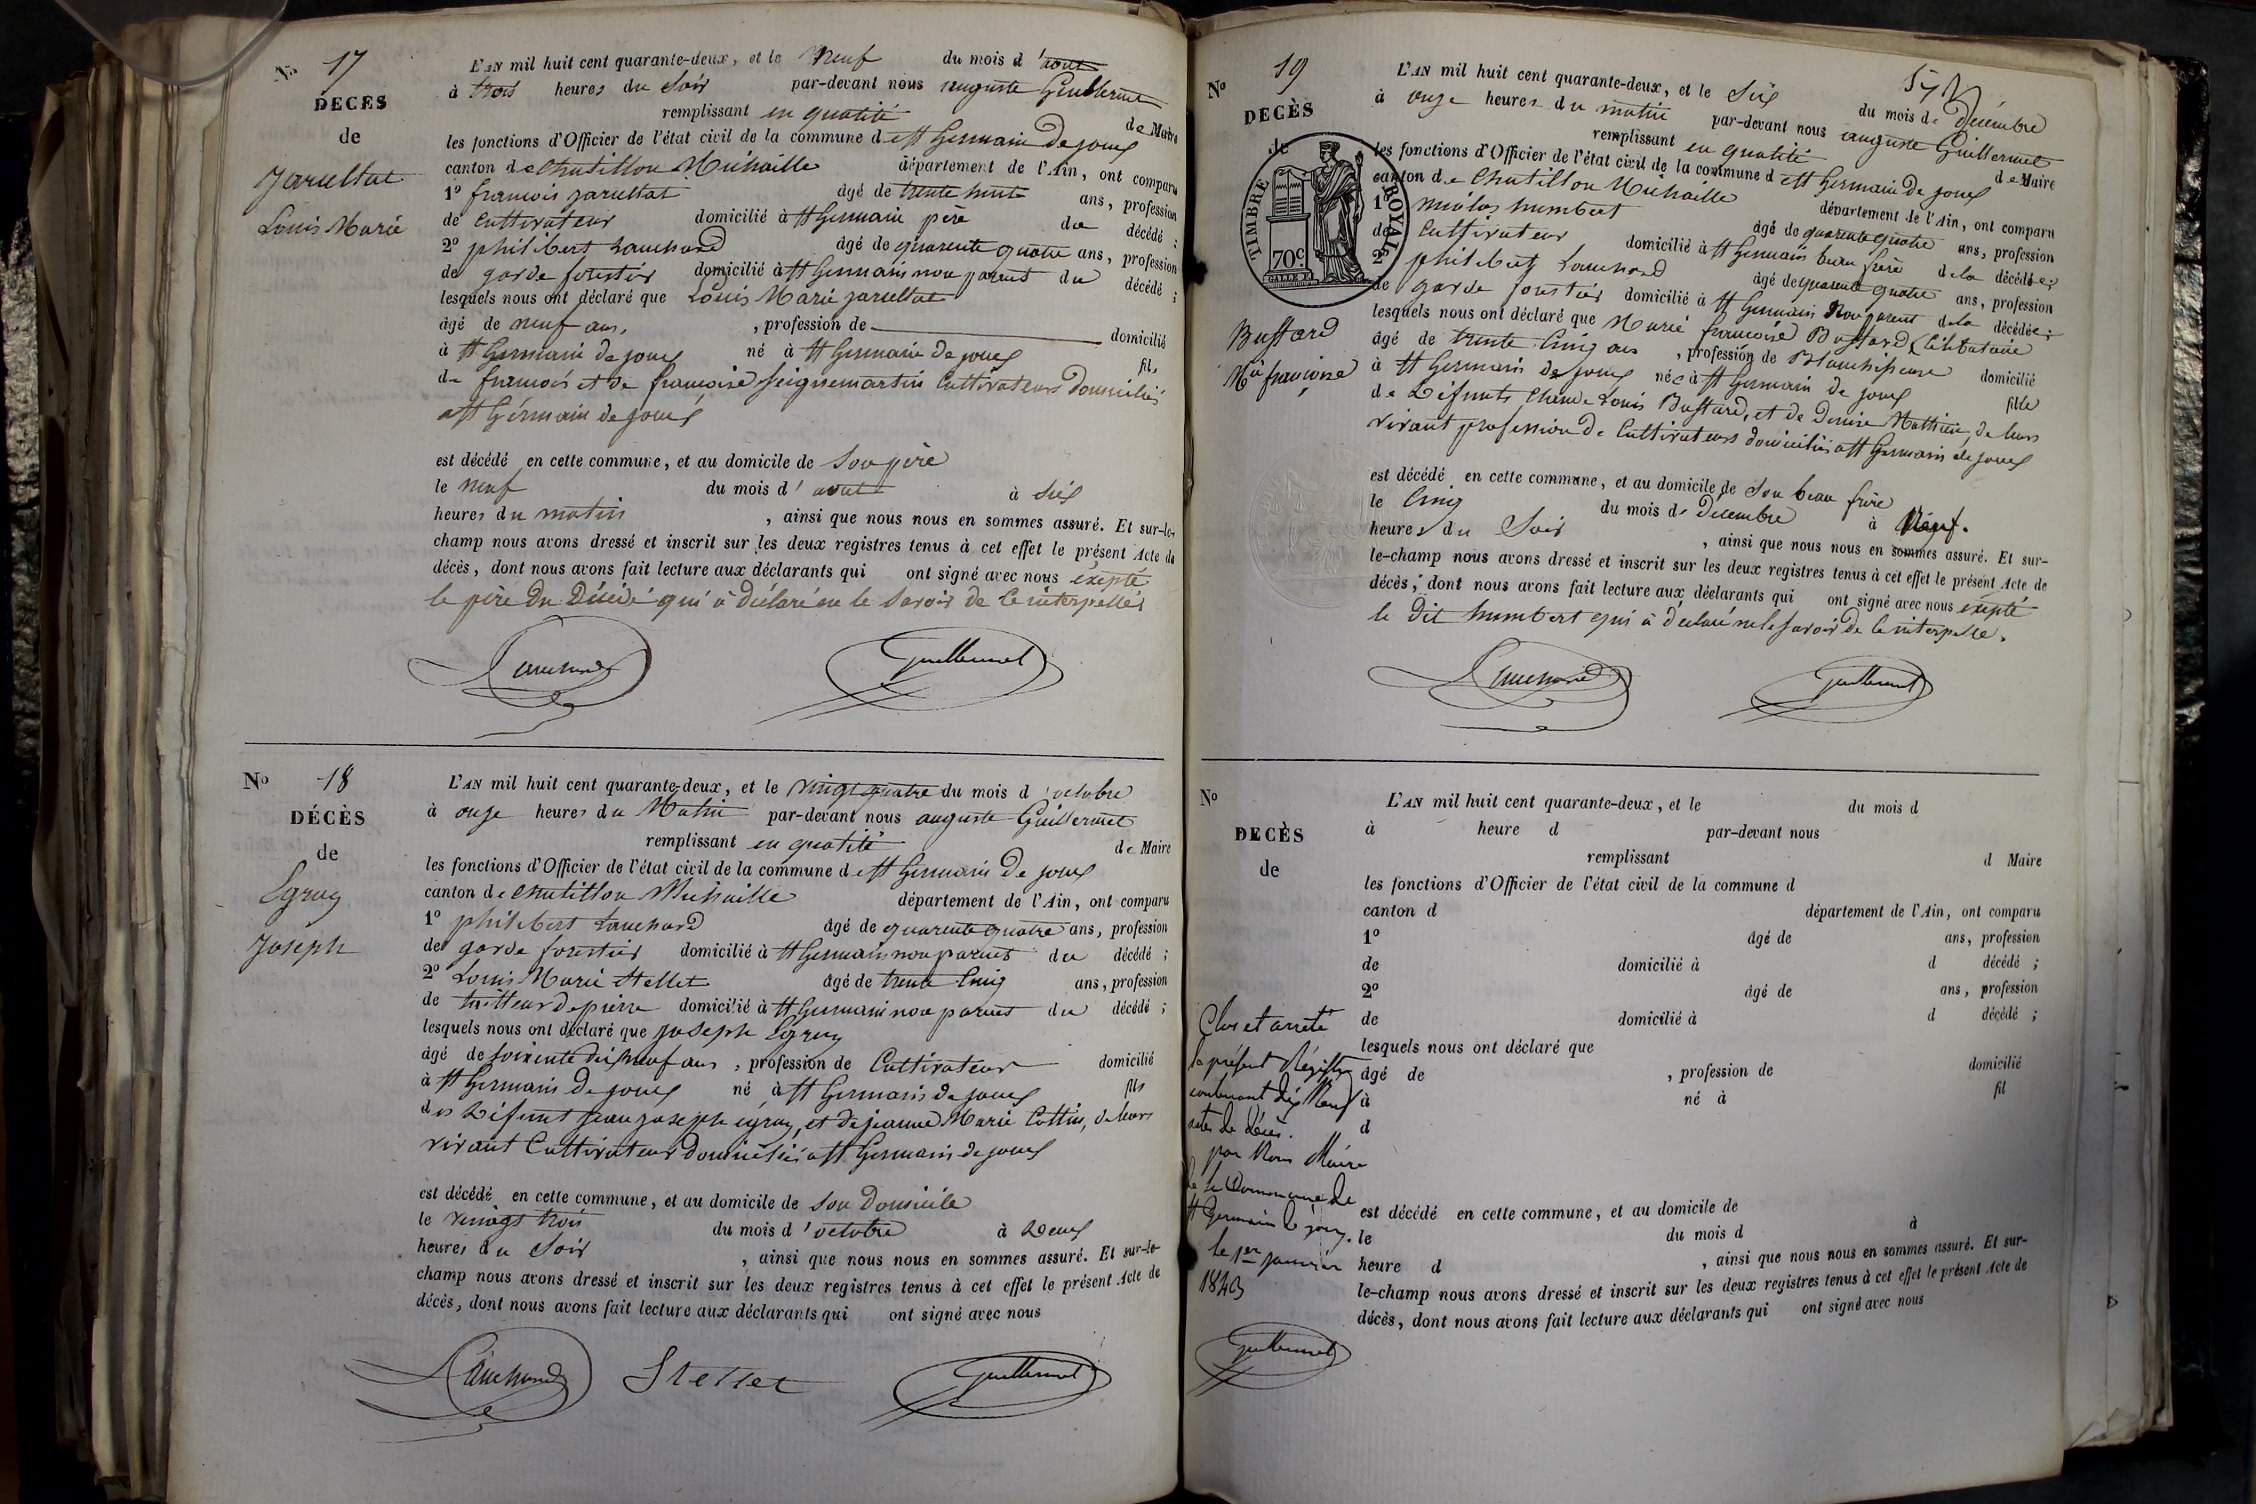 No 17
DECES
de
Jarulltat
Louis Marie
L'AN mil huit cent quarante-deux, et le Neuf du mois d'aout
à trois heures du Soir par-devant nous auguste Guillermet
remplissant en qualité de Maire
les fonctions d'Officier de l'état civil de la commune de St Germain De joux
canton de Chatillon Michaille département de l'Ain, ont comparu
1o francois jarulltat âgé de trente huit ans, profession
de Cultivateur domicilié à St Germain père du décédé ;
2o philibert Lanchard âgé de quarente quatre ans, profession
de garde forestier domicilié à St Germain non parent du décédé ;
lesquels nous ont déclaré que Louis Marie jarulltat
âgé de neuf ans, , profession de domicilié
à St Germain de joux né à St Germain de joux fils
de francois et de francoise seignemartin Cultivateurs Domiciliés
a St Germain de joux
est décédé en cette commune, et au domicile de Son père
le neuf du mois d'aout à Six
heures du matin , ainsi que nous nous en sommes assuré. Et sur-le-
champ nous avons dressé et inscrit sur les deux registres tenus à cet effet le présent Acte de
décès, dont nous avons fait lecture aux déclarants qui ont signé avec nous éxepté
le père du Décédé qui à déclaré ne le Savoir de Ce interpellé
Lanchard Guillermet
No 18
DÉCÈS
de
Egruy
Joseph
L'AN mil huit cent quarante-deux, et le vingt quatre du mois d'octobre
à onze heures du Matin par-devant nous auguste Guillermet
remplissant en qualité de Maire
les fonctions d'Officier de l'état civil de la commune de St Germain De joux
canton de Chatillon Michaille département de l'Ain, ont comparu
1o philibert Lanchard âgé de quarente quatre ans, profession
de garde forestier domicilié à St Germain non parent du décédé ;
2o Louis Marie Stellet âgé de trente Cinq ans, profession
de tailleur de pierre domicilié à St Germain non parent du décédé ;
lesquels nous ont déclaré que joseph Egruy
âgé de soixente dix neuf ans , profession de Cultivateur domicilié
à St Germain de joux né à St Germain de joux fils
des Défunt jean joseph egruy, et de jeanne Marie Cottin, de leurs
vivant Cultivateurs Domiciliés a St Germain de joux
est décédé en cette commune, et au domicile de Son Domicile
le vingt trois du mois d'octobre à Deux
heures du Soir , ainsi que nous nous en sommes assuré. Et sur-le-
champ nous avons dressé et inscrit sur les deux registres tenus à cet effet le présent Acte de
décès, dont nous avons fait lecture aux déclarants qui ont signé avec nous
Lanchard Stellet Guillermet
No 19
DECÈS
de
TIMBRE ROYAL
70c
Buffard
Mie françoise
L'AN mil huit cent quarante-deux, et le Six du mois de Décembre
à onze heures du matin par-devant nous auguste Guillermet
remplissant en qualité de Maire
les fonctions d'Officier de l'état civil de la commune de St Germain de joux
canton de Chatillon Michaille département de l'Ain, ont comparu
1o humbert âgé de quarente quatre ans, profession
de Cultivateur domicilié à St Germain beau frère de la décédée ;
2o philibert Lanchard âgé de quarente quatre ans, profession
de garde forestier domicilié à St Germain Non parent de la décédée ;
lesquels nous ont déclaré que Marie francoise Buffard Célibataire
âgé de trente Cinq ans , profession de Blanchisseuse domicilié
à St Germain de joux née à St Germain de joux fille
de Défunts Claude Louis Buffard, et de Denise Mathieu, de leurs
vivant profession de Cultivateurs domiciliés a St Germain de joux
est décédé en cette commune, et au domicile de Son beau frère
le Cinq du mois de Décembre à Neuf.
heures du Soir , ainsi que nous nous en sommes assuré. Et sur-
le-champ nous avons dressé et inscrit sur les deux registres tenus à cet effet le présent Acte de
décès, dont nous avons fait lecture aux déclarants qui ont signé avec nous éxepté
le Dit humbert qui à déclaré ne le Savoir de Ce interpellé.
Lanchard Guillermet
No
DECÈS
de
L'AN mil huit cent quarante-deux, et le du mois d
à heure d par-devant nous
remplissant d Maire
les fonctions d'Officier de l'état civil de la commune d
canton d département de l'Ain, ont comparu
1o âgé de ans, profession
de domicilié à d décédé ;
2o âgé de ans, profession
de domicilié à d décédé ;
lesquels nous ont déclaré que
âgé de , profession de domicilié
à né à fil
d
est décédé en cette commune, et au domicile de
le du mois d à
heure d , ainsi que nous nous en sommes assuré. Et sur-
le-champ nous avons dressé et inscrit sur les deux registres tenus à cet effet le présent Acte de
décès, dont nous avons fait lecture aux déclarants qui ont signé avec nous
Clos et arrêté
le présent Régistre
contenant dix Neuf
actes de décès.
par Nous Maire
de la Commune de
St Germain de joux.
le 1er janvier
1843
Guillermet